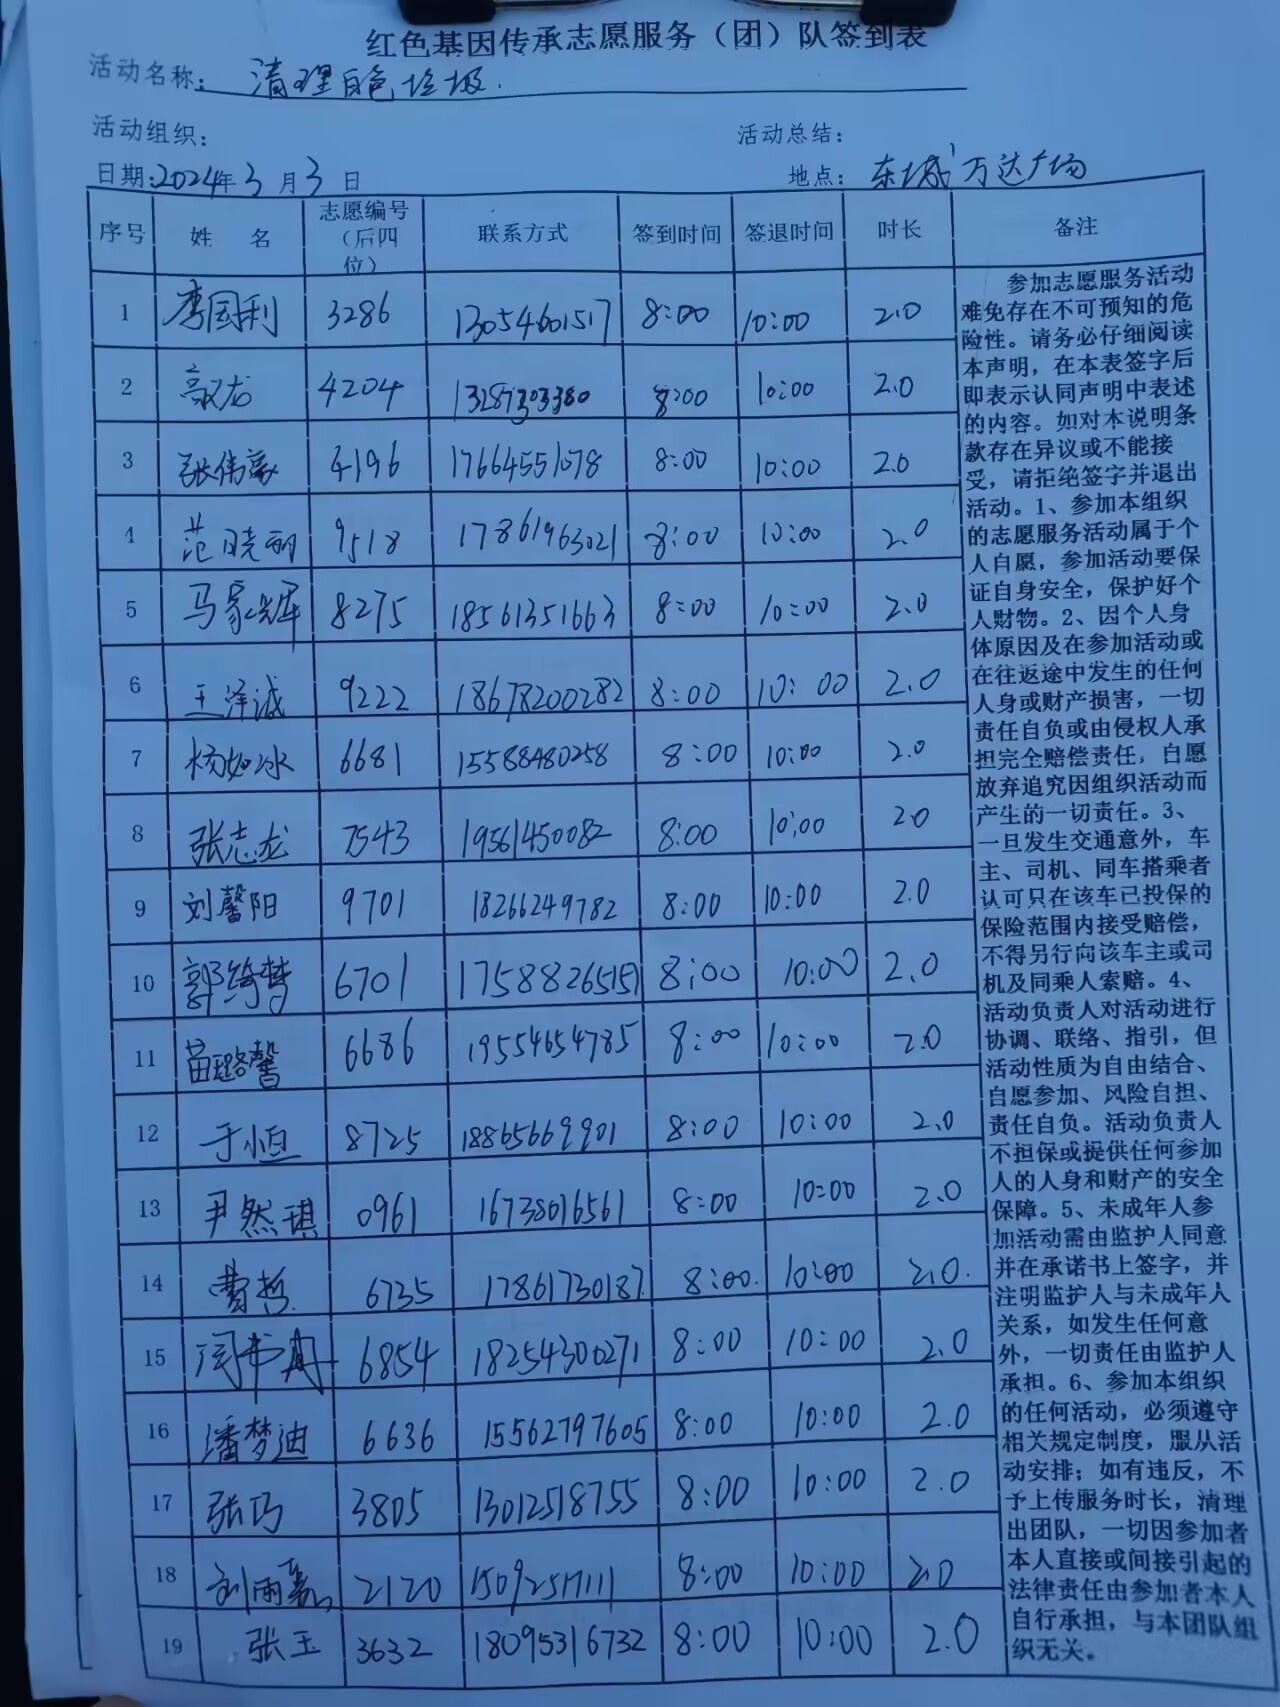 红色基因传承志愿服务（团）队签到表
活动名称：清理白色垃圾.
活动组织：
活动总结：
日期：2024年3月3日
地点：东城万达广场
序号 姓 名 志愿编号（后四位） 联系方式 签到时间 签退时间 时长 备注
1 李国利 3286 13054601517 8:00 10:00 2.0
2 高龙 4204 13287303380 8:00 10:00 2.0
3 张伟豪 4196 17664551078 8:00 10:00 2.0
4 范晓丽 9518 17861963021 8:00 10:00 2.0
5 马家辉 8275 18561351663 8:00 10:00 2.0
6 王泽诚 9222 18678200282 8:00 10:00 2.0
7 杨如冰 6681 15588480258 8:00 10:00 2.0
8 张志龙 7543 19561450082 8:00 10:00 2.0
9 刘馨阳 9701 18266249782 8:00 10:00 2.0
10 郭绮梦 6701 17588265151 8:00 10:00 2.0
11 苗璐馨 6686 19554654785 8:00 10:00 2.0
12 于恒 8725 18865669901 8:00 10:00 2.0
13 尹然琪 0961 16738016561 8:00 10:00 2.0
14 曹哲 6735 17861730187 8:00. 10:00 2.0.
15 闫书冉 6854 18254300271 8:00 10:00 2.0
16 潘梦迪 6636 15562797605 8:00 10:00 2.0
17 张巧 3805 13012518755 8:00 10:00 2.0
18 刘雨嘉 2120 15092517111 8:00 10:00 2.0
19 张玉 3632 18095316732 8:00 10:00 2.0
参加志愿服务活动
难免存在不可预知的危
险性。请务必仔细阅读
本声明，在本表签字后
即表示认同声明中表述
的内容。如对本说明条
款存在异议或不能接
受，请拒绝签字并退出
活动。1、参加本组织
的志愿服务活动属于个
人自愿，参加活动要保
证自身安全，保护好个
人财物。2、因个人身
体原因及在参加活动或
在往返途中发生的任何
人身或财产损害，一切
责任自负或由侵权人承
担完全赔偿责任，自愿
放弃追究因组织活动而
产生的一切责任。3、
一旦发生交通意外，车
主、司机、同车搭乘者
认可只在该车已投保的
保险范围内接受赔偿，
不得另行向该车主或司
机及同乘人索赔。4、
活动负责人对活动进行
协调、联络、指引，但
活动性质为自由结合、
自愿参加、风险自担、
责任自负。活动负责人
不担保或提供任何参加
人的人身和财产的安全
保障。5、未成年人参
加活动需由监护人同意
并在承诺书上签字，并
注明监护人与未成年人
关系，如发生任何意
外，一切责任由监护人
承担。6、参加本组织
的任何活动，必须遵守
相关规定制度，服从活
动安排；如有违反，不
予上传服务时长，清理
出团队，一切因参加者
本人直接或间接引起的
法律责任由参加者本人
自行承担，与本团队组
织无关。